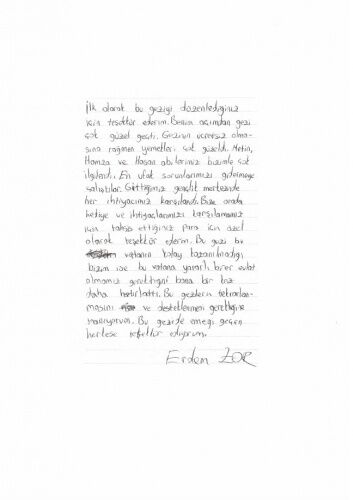 İlk olarak bu geziyi düzenlediğiniz
için teşekkür ederim. Benim açımdan gezi
çok güzel geçti. Gezinin ücretsiz olma-
sına rağmen yemekleri çok güzeldi. Metin,
Hamza ve Hasan abilerimiz bizimle çok
ilgilendi. En ufak sorunlarımızı gidermeye
çalıştılar. Gittiğimiz gençlik merkezinde
her ihtiyacımız karşılandı. Bize orada
hediye ve ihtiyaçlarımızı karşılamamız
için tahsis ettiğiniz para için özel
olarak teşekkür ederim. Bu gezi bu
vatanın kolay kazanılmadığı
bizim ise bu vatana yararlı birer evlat
olmamız gerektiğini bana bir kez
daha hatırlattı. Bu gezilerin tekrarlan-
masını ve desteklenmesi gerektiğine
inanıyorum. Bu gezide emeği geçen
herkese teşekkür ediyorum.
Erdem ZOR